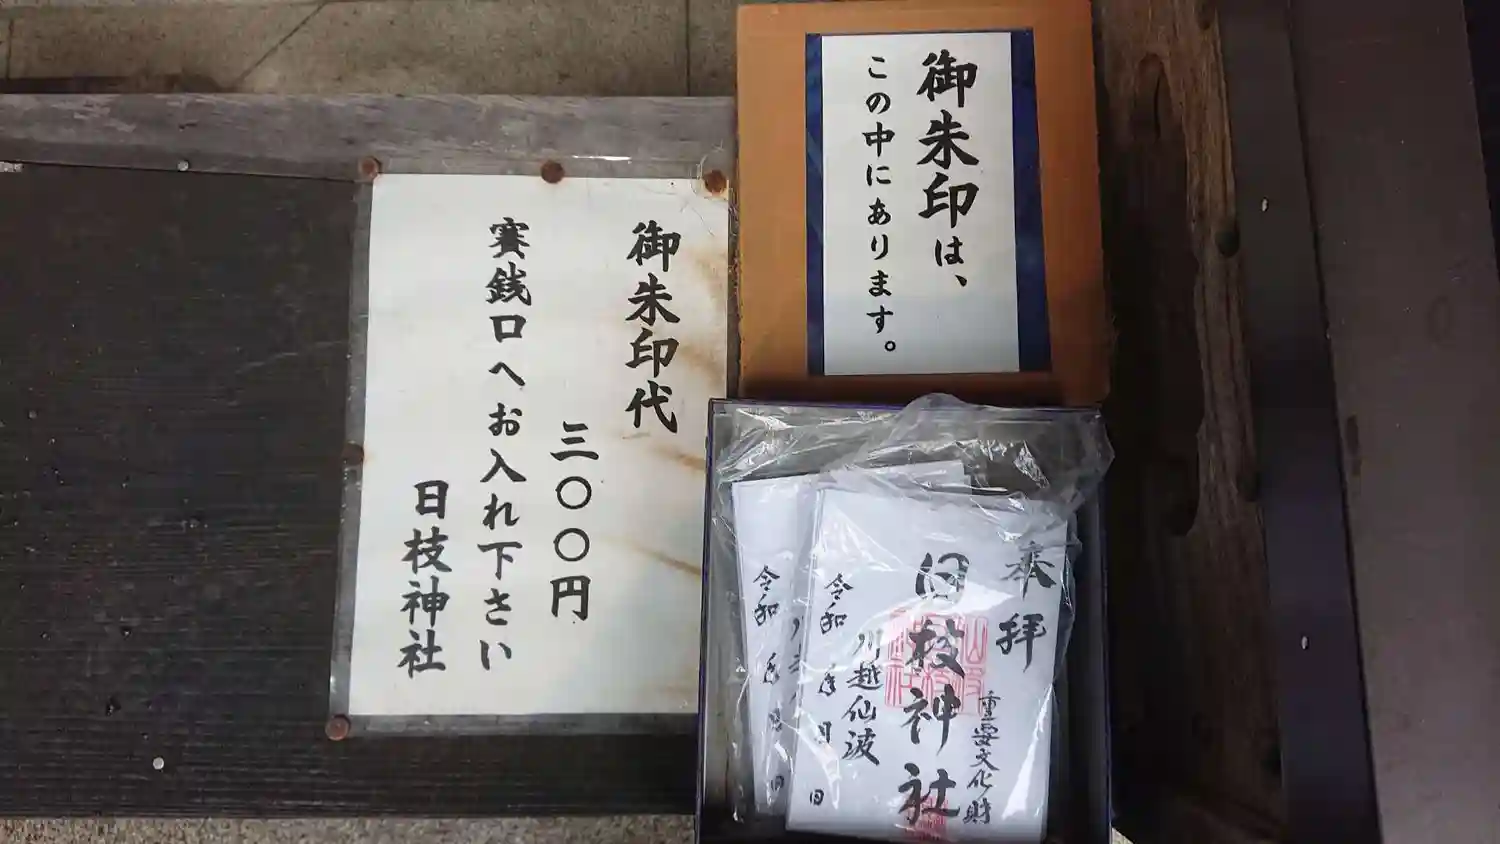 御朱印は、
この中にあります。
御朱印代
三〇〇円
賽銭口へお入れ下さい
日枝神社
奉拝
重要文化財
日枝神社
川越仙波
令和 年 月 日
令和 年 月 日